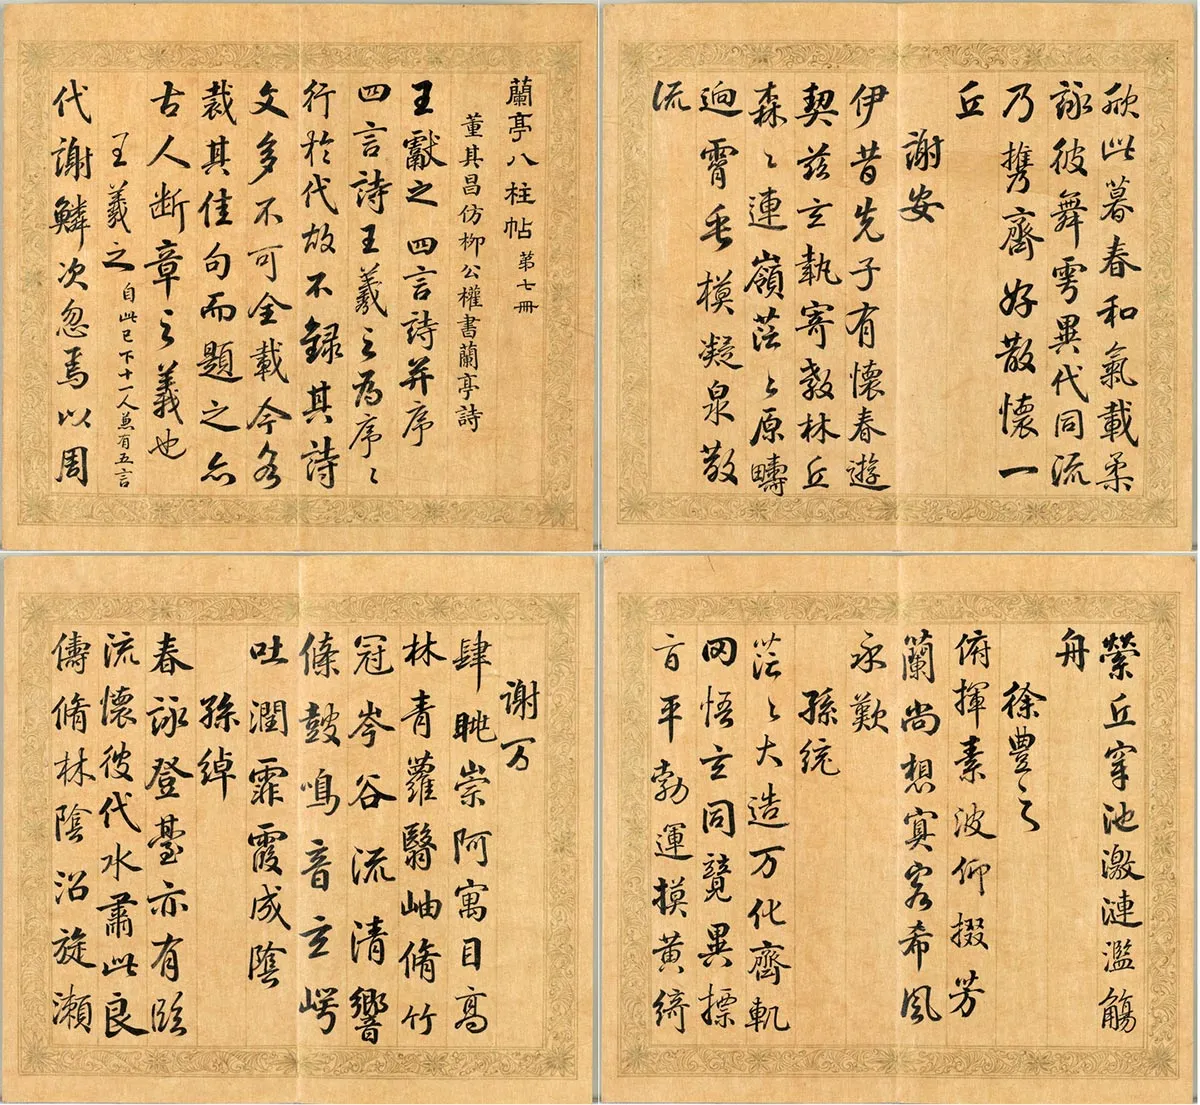 蘭亭八柱帖 第七冊
董其昌仿柳公權書蘭亭詩
王獻之四言詩并序
四言詩王羲之為序〻
行於代故不錄其詩
文多不可全載今各
裁其佳句而題之亦
古人断章之義也
王羲之 自此已下十一人兼有五言
代謝鱗次忽焉以周
欣此暮春和氣載柔
詠彼舞雩異代同流
乃携齊好散懷一
丘
謝安
伊昔先子有懷春遊
契茲玄執寄敖林丘
森〻連嶺茫〻原疇
迥霄垂模凝泉散
流
謝万
肆眺崇阿寓目高
林青蘿翳岫脩竹
冠岑谷流清響
條鼓鳴音玄崿
吐潤霏霞成陰
孫綽
春詠登臺亦有臨
流懷彼代水肅此良
儔脩林陰沼旋瀨
縈丘穿池激漣濫觴
舟
徐豐之
俯揮素波仰掇芳
蘭尚想冥客希風
永歎
孫統
茫〻大造万化齊軌
罔悟玄同競異摽
旨平勃運摸黃綺